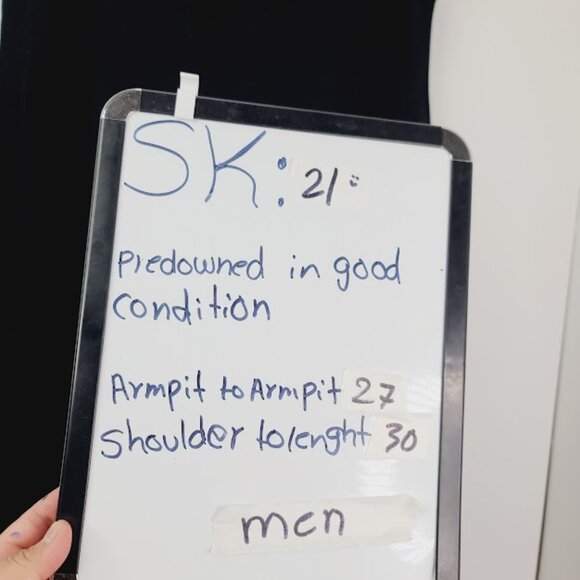 SK: 21:
predowned in good
condition
Armpit to Armpit 27
Shoulder to lenght 30
men